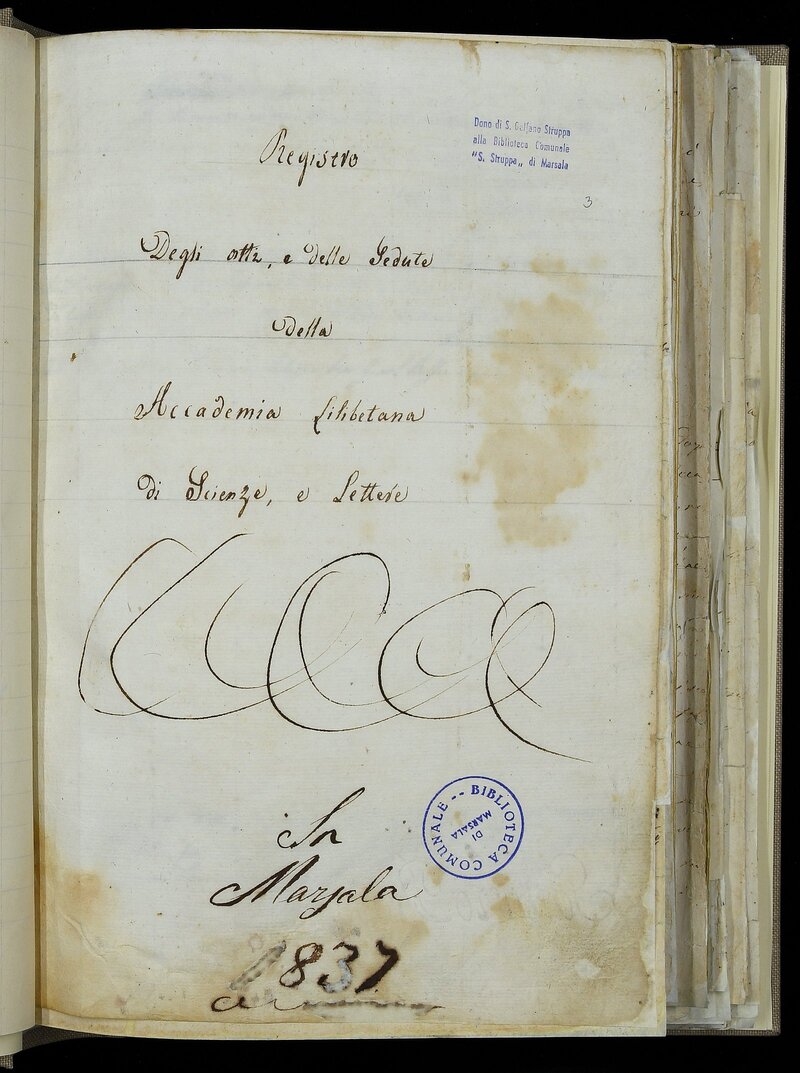 Registro
Dono di S. Galfano Struppa
alla Biblioteca Comunale
"S. Struppa„ di Marsala
3
Degli atti, e delle Sedute
della
Accademia Lilibetana
di Scienze, e Lettere
In
Marsala
1837
BIBLIOTECA COMUNALE --
DI
MARSALA